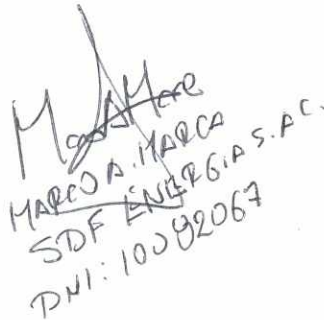 MARCO A. MARCA
SDF ENERGIA S.A.C.
DNI: 10092067